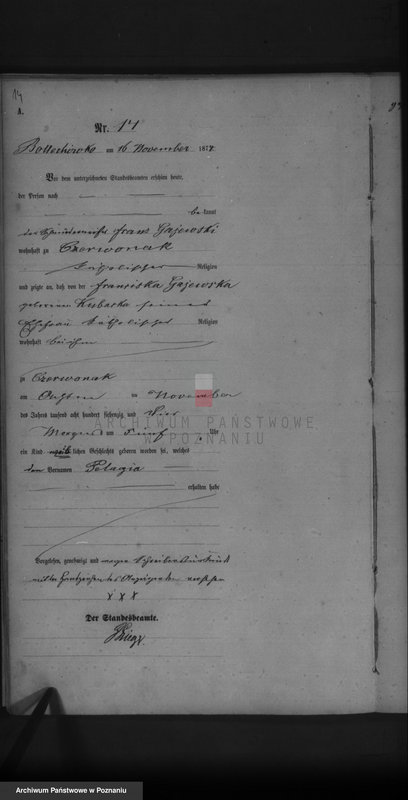 14
A.
Nr. 14
Bolechowko am 16 November 1874.
Vor dem unterzeichneten Standesbeamten erschien heute,
der Person nach
bekannt
der Franz Gajewski
wohnhaft zu Czerwonak
katholischer Religion
und zeigte an, daß von der Franciska Gajewska
geborenen seiner
Ehefrau katholischer Religion
wohnhaft bei ihm
zu Czerwonak
am Achten ten November
des Jahres tausend acht hundert siebenzig und Vier
Morgens um Fünf Uhr
ein Kind weiblichen Geschlechts geboren worden sei, welches
den Vornamen Pelagia
erhalten habe
ARCHIWUM PAŃSTWOWE
W POZNANIU
Vorgelesen, genehmigt und wegen Schreibensunkunde
mit den Handzeichen des versehen
x x x
Der Standesbeamte.
Archiwum Państwowe w Poznaniu